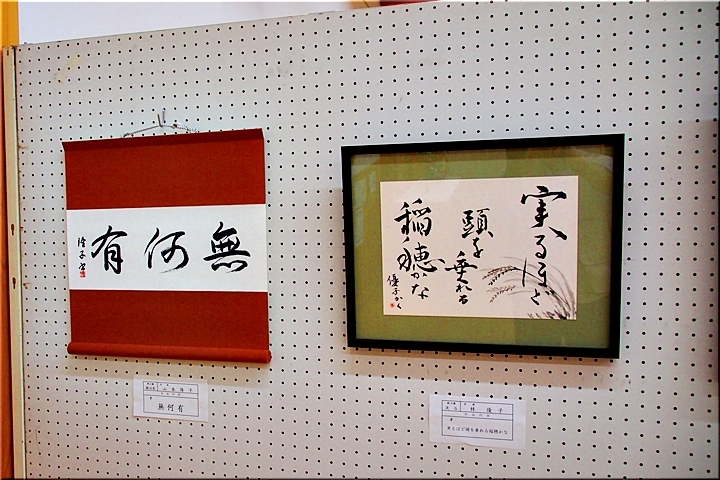 無何有
実るほど
頭を
垂れる
稲穂かな
優子かく
無何有
林 優子
実るほど頭を垂れる稲穂かな